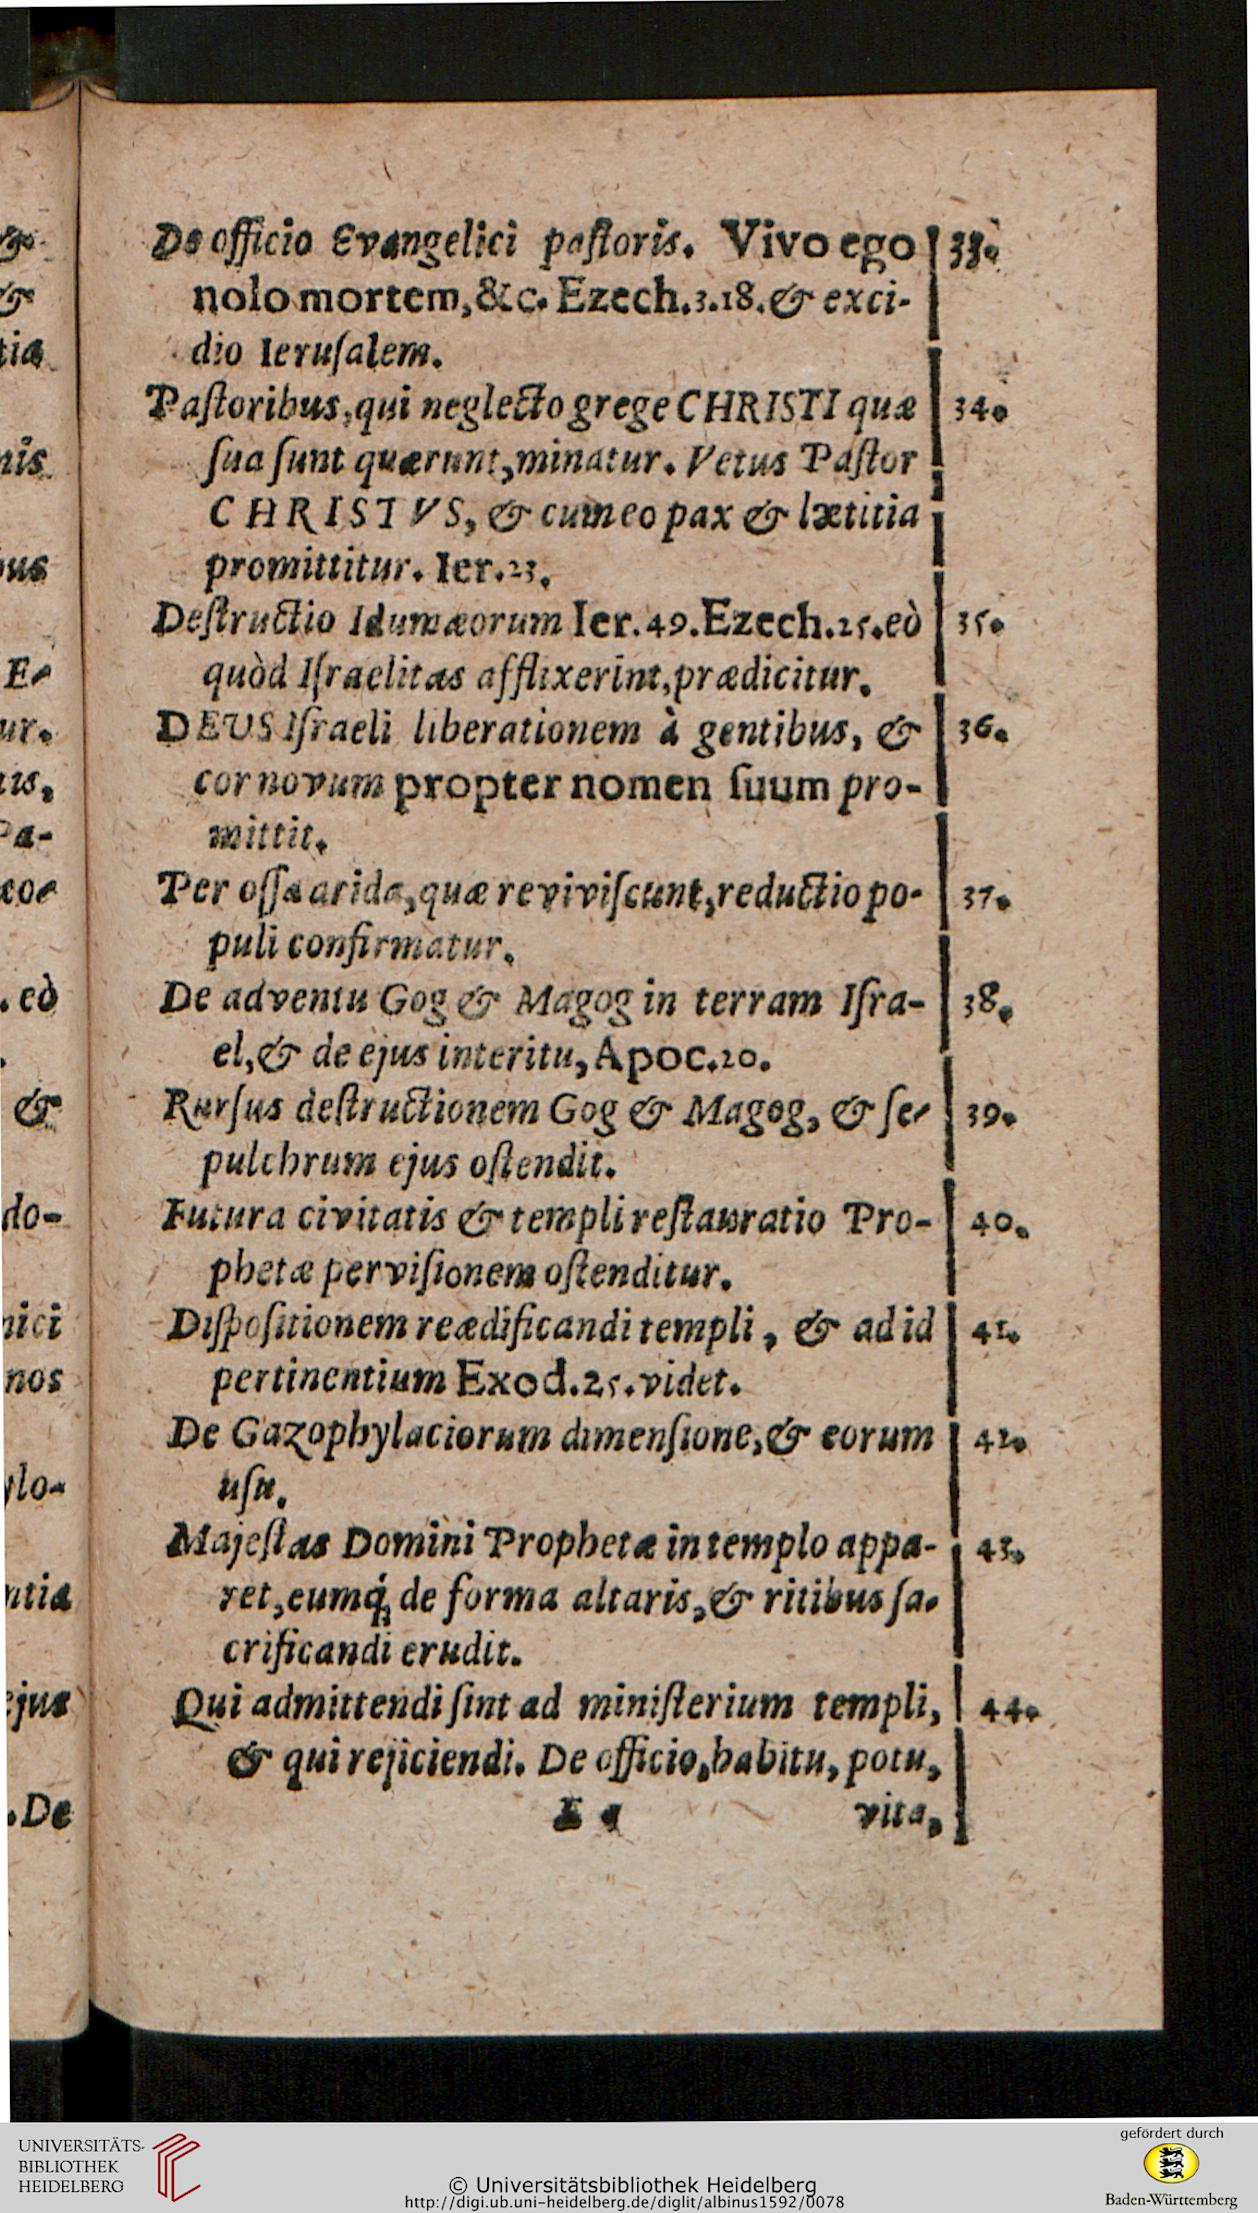 De officio Evangelici paſtoris. Vivo ego 33.
nolo mortem,&c. Ezech.3.18.& exci-
dio Ieruſalem.
Paſtoribus,qui neglecto grege CHRISTI quæ 34.
ſua ſunt quærunt,minatur. Vetus Paſtor
CHRISTVS, & cum eo pax & lætitia
promittitur. Ier.23.
Deſtructio Idumæorum Ier.49.Ezech.25.eò 35.
quòd Iſraelitas afflixerint,prædicitur.
DEUS Iſraeli liberationem à gentibus, & 36.
cor novum propter nomen ſuum pro-
mittit.
Per oſſa arida,quæ reviviſcunt,reductio po- 37.
puli confirmatur.
De adventu Gog & Magog in terram Iſra- 38.
el,& de ejus interitu,Apoc.20.
Rurſus deſtructionem Gog & Magog, & ſe- 39.
pulchrum ejus oſtendit.
Futura civitatis & templi reſtauratio Pro- 40.
phetæ per viſionem oſtenditur.
Diſpoſitionem reædificandi templi, & ad id 41.
pertinentium Exod.25.videt.
De Gazophylaciorum dimenſione,& eorum 42.
uſu.
Majeſtas Domini Prophetæ in templo appa- 43.
ret,eumq́; de forma altaris,& ritibus ſa-
crificandi erudit.
Qui admittendi ſint ad miniſterium templi, 44.
& qui rejiciendi. De officio,habitu, potu,
vita,
&
&
tia
nis
bus
E-
ur.
us,
Pa-
æo-
. eò
&
do-
nici
nos
ylo-
ntia
ejus
.De
UNIVERSITÄTS-
BIBLIOTHEK
HEIDELBERG
© Universitätsbibliothek Heidelberg
http://digi.ub.uni-heidelberg.de/diglit/albinus1592/0078
gefördert durch
Baden-Württemberg